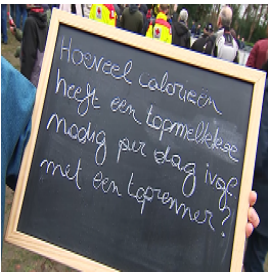 Hoeveel calorieën
heeft een topmelkkoe
nodig per dag ivgl
met een toprenner?